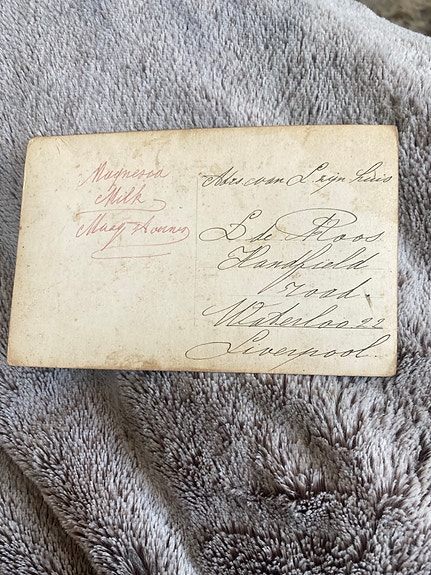 Magnesia
Milk
Adres van L zijn huis
L de Roos
Handfield
road.
Waterloo 22
Liverpool.